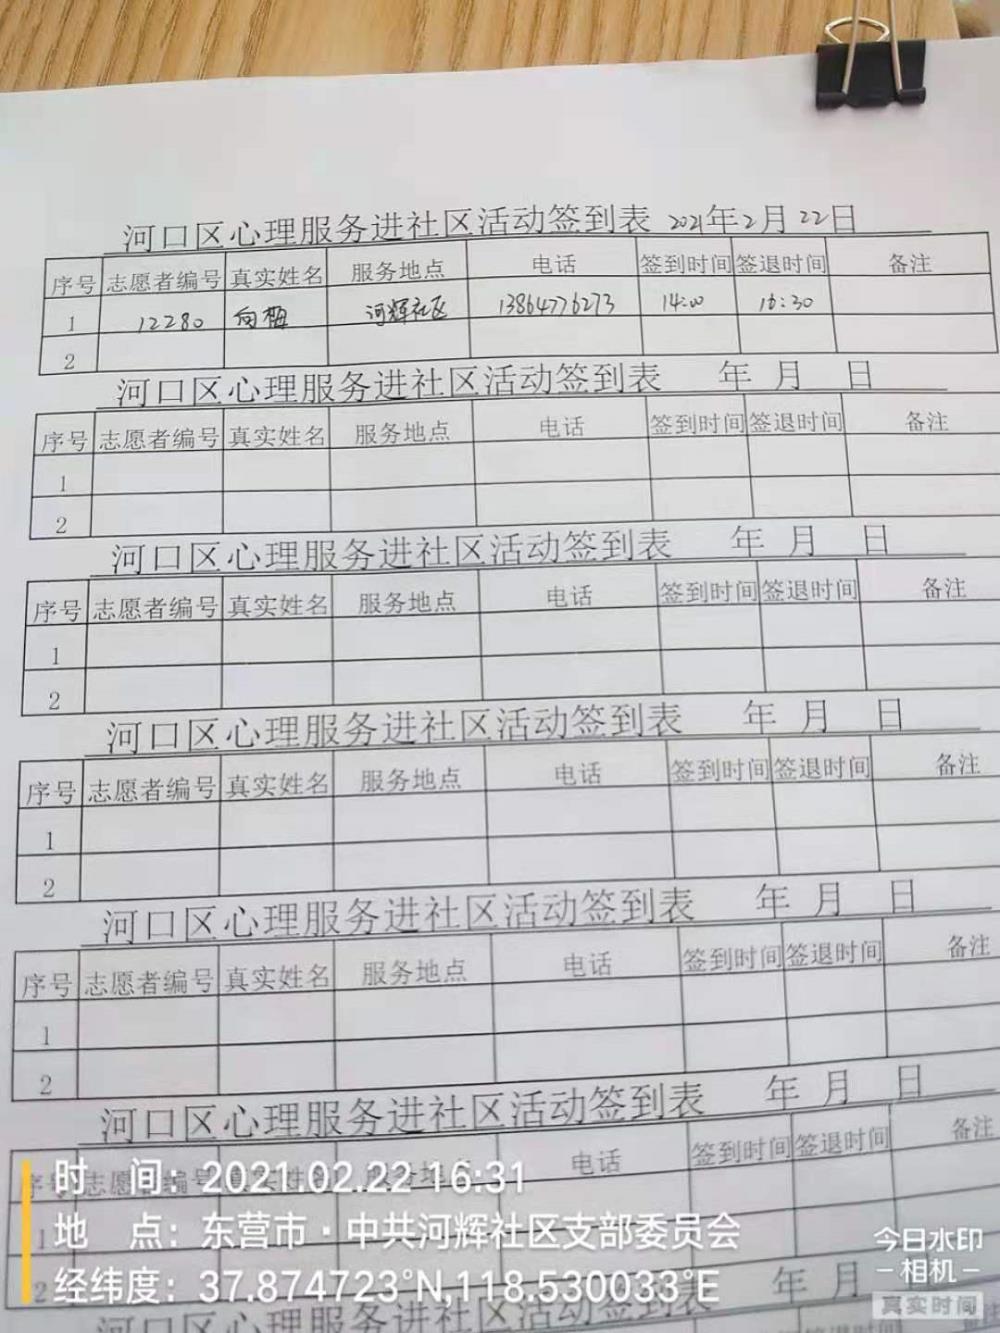 河口区心理服务进社区活动签到表 2021年2月22日
序号 志愿者编号 真实姓名 服务地点 电话 签到时间 签退时间 备注
1 12280 向梅 河辉社区 13864776273 14:00 16:30
2
河口区心理服务进社区活动签到表 年 月 日
序号 志愿者编号 真实姓名 服务地点 电话 签到时间 签退时间 备注
1
2
河口区心理服务进社区活动签到表 年 月 日
序号 志愿者编号 真实姓名 服务地点 电话 签到时间 签退时间 备注
1
2
河口区心理服务进社区活动签到表 年 月 日
序号 志愿者编号 真实姓名 服务地点 电话 签到时间 签退时间 备注
1
2
河口区心理服务进社区活动签到表 年 月 日
序号 志愿者编号 真实姓名 服务地点 电话 签到时间 签退时间 备注
1
2
河口区心理服务进社区活动签到表 年 月 日
序号 志愿者编号 真实姓名 服务地点 电话 签到时间 签退时间 备注
1
2
河口区心理服务进社区活动签到表 年 月
签到时间 签退时间
时 间：2021.02.22 16:31
地 点：东营市·中共河辉社区支部委员会
经纬度：37.874723°N,118.530033°E
今日水印
相机
真实时间